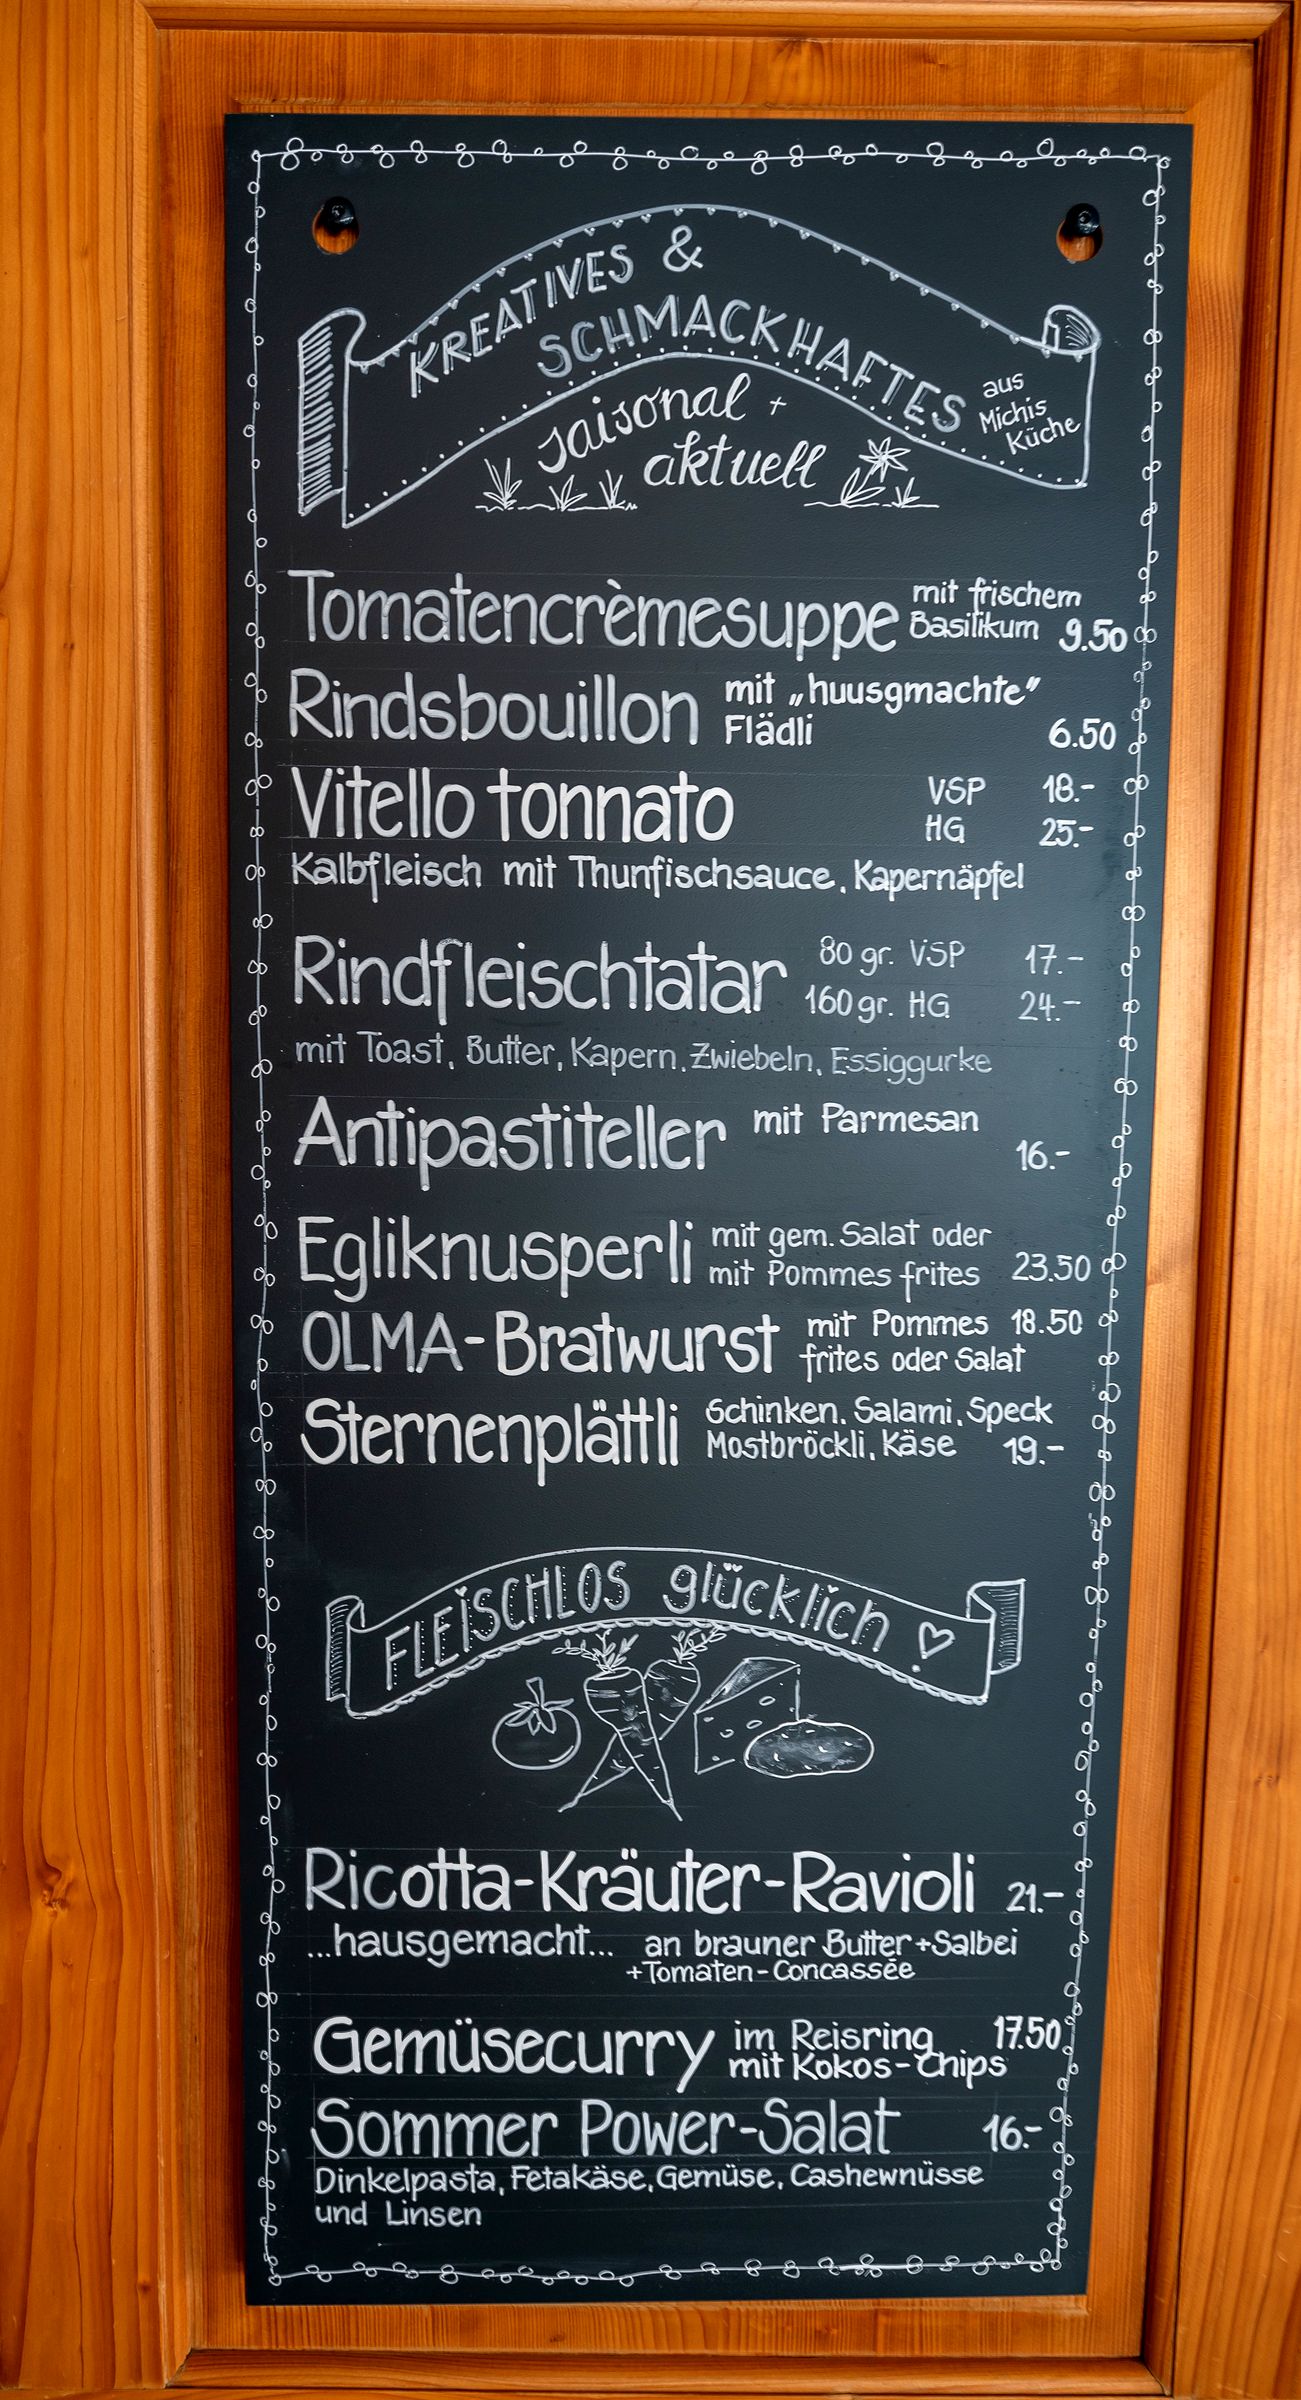 KREATIVES &
SCHMACKHAFTES
aus
Michis
Küche
saisonal +
aktuell
Tomatencrèmesuppe mit frischem
Basilikum 9.50
Rindsbouillon mit „huusgmachte"
Flädli 6.50
Vitello tonnato VSP 18.-
HG 25.-
Kalbfleisch mit Thunfischsauce, Kapernäpfel
Rindfleischtatar 80 gr. VSP 17.-
160 gr. HG 24.-
mit Toast, Butter, Kapern, Zwiebeln, Essiggurke
Antipastiteller mit Parmesan
16.-
Egliknusperli mit gem. Salat oder
mit Pommes frites 23.50
OLMA-Bratwurst mit Pommes 18.50
frites oder Salat
Sternenplättli Schinken, Salami, Speck
Mostbröckli, Käse 19.-
FLEISCHLOS glücklich !
Ricotta-Kräuter-Ravioli 21.-
...hausgemacht... an brauner Butter + Salbei
+ Tomaten-Concassée
Gemüsecurry im Reisring 17.50
mit Kokos-Chips
Sommer Power-Salat 16.-
Dinkelpasta, Fetakäse, Gemüse, Cashewnüsse
und Linsen